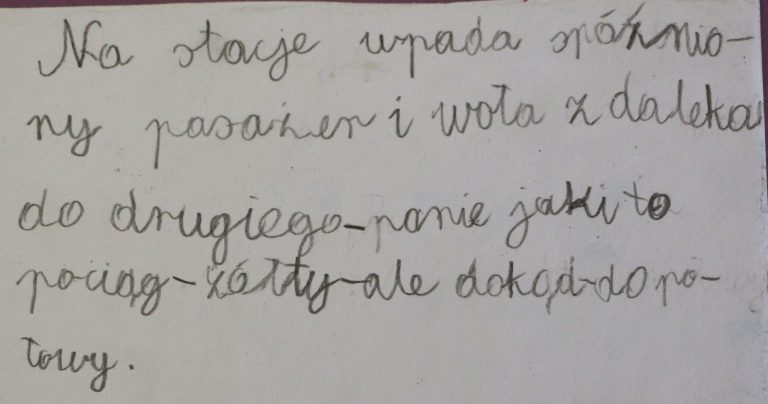 Na stacje wpada spóźnio-
ny pasażer i woła z daleka
do drugiego-panie jaki to
pociąg-żółty-ale dokąd-do po-
łowy.